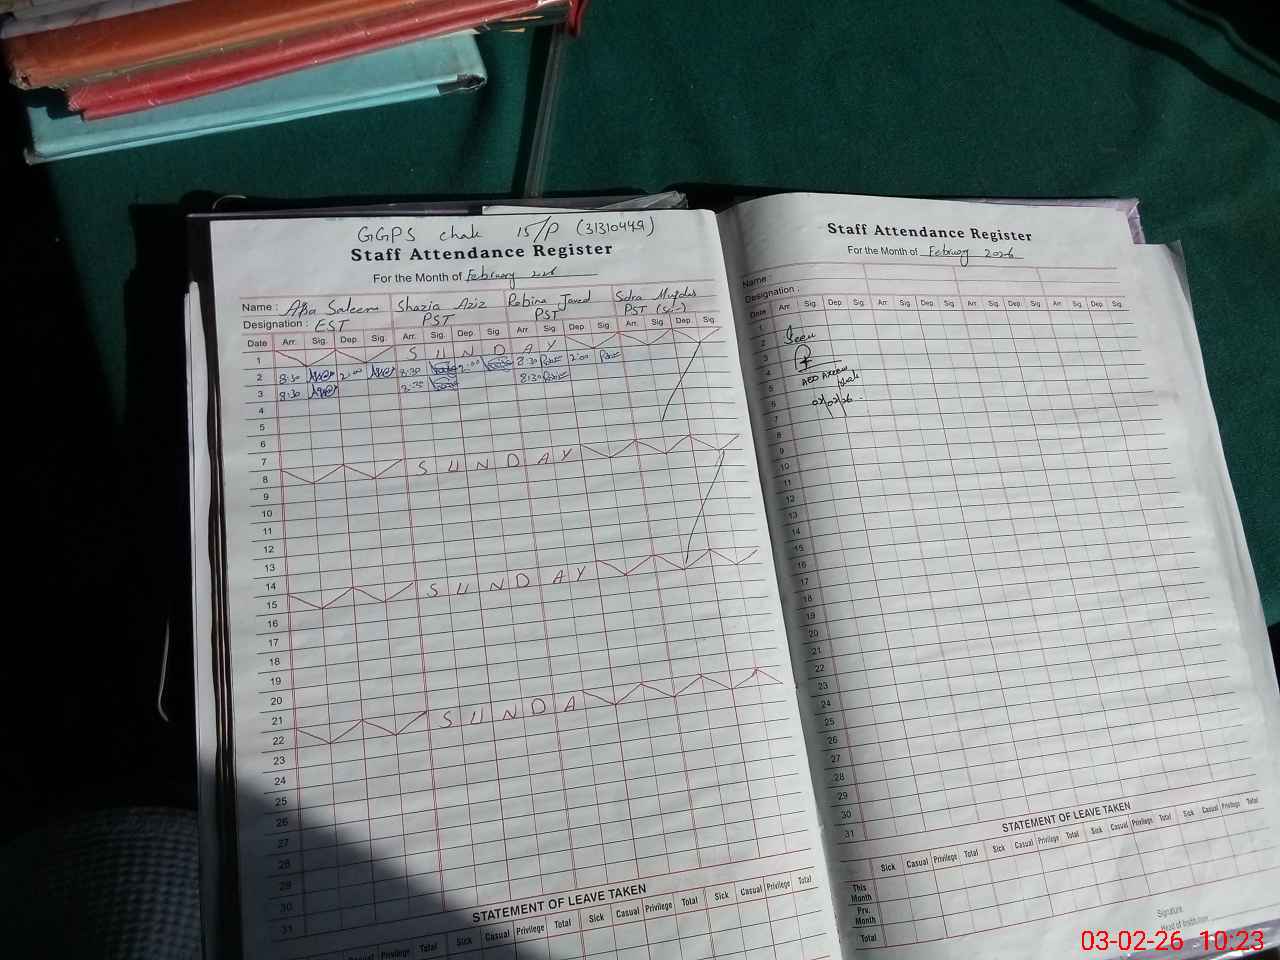 GGPS chak 15/P (31310449)
Staff Attendance Register
For the Month of February
Name : Saleem Shazia Aziz Robina Javed Sidra
Designation : EST PST PST PST
Date Arr. Sig. Dep. Sig. Arr. Sig. Dep. Sig. Arr. Sig. Dep. Sig. Arr. Sig. Dep. Sig.
1 S U N D A Y
2 8:30 2:00 8:30 2:00 8:30 2:00
3 8:30 8:30
4
5
6
7
8 S U N D A Y
9
10
11
12
13
14
15 S U N D A Y
16
17
18
19
20
21
22 S U N D A
23
24
25
26
27
28
29
30
31
STATEMENT OF LEAVE TAKEN
Sick Casual Privilege Total Sick Casual Privilege Total Sick Casual Privilege Total
Staff Attendance Register
For the Month of February 2026
Name :
Designation :
Date Arr. Sig. Dep. Sig. Arr. Sig. Dep. Sig. Arr. Sig. Dep. Sig.
1
2 Seen
3
4
5 AEO
6
7
8
9
10
11
12
13
14
15
16
17
18
19
20
21
22
23
24
25
26
27
28
29
30
31
STATEMENT OF LEAVE TAKEN
Sick Casual Privilege Total Sick Casual Privilege Total Sick Casual Privilege Total Sick Casual Privilege Total
This Month
Prv. Month
Total
Signature
Head of Institution
03-02-26 10:23